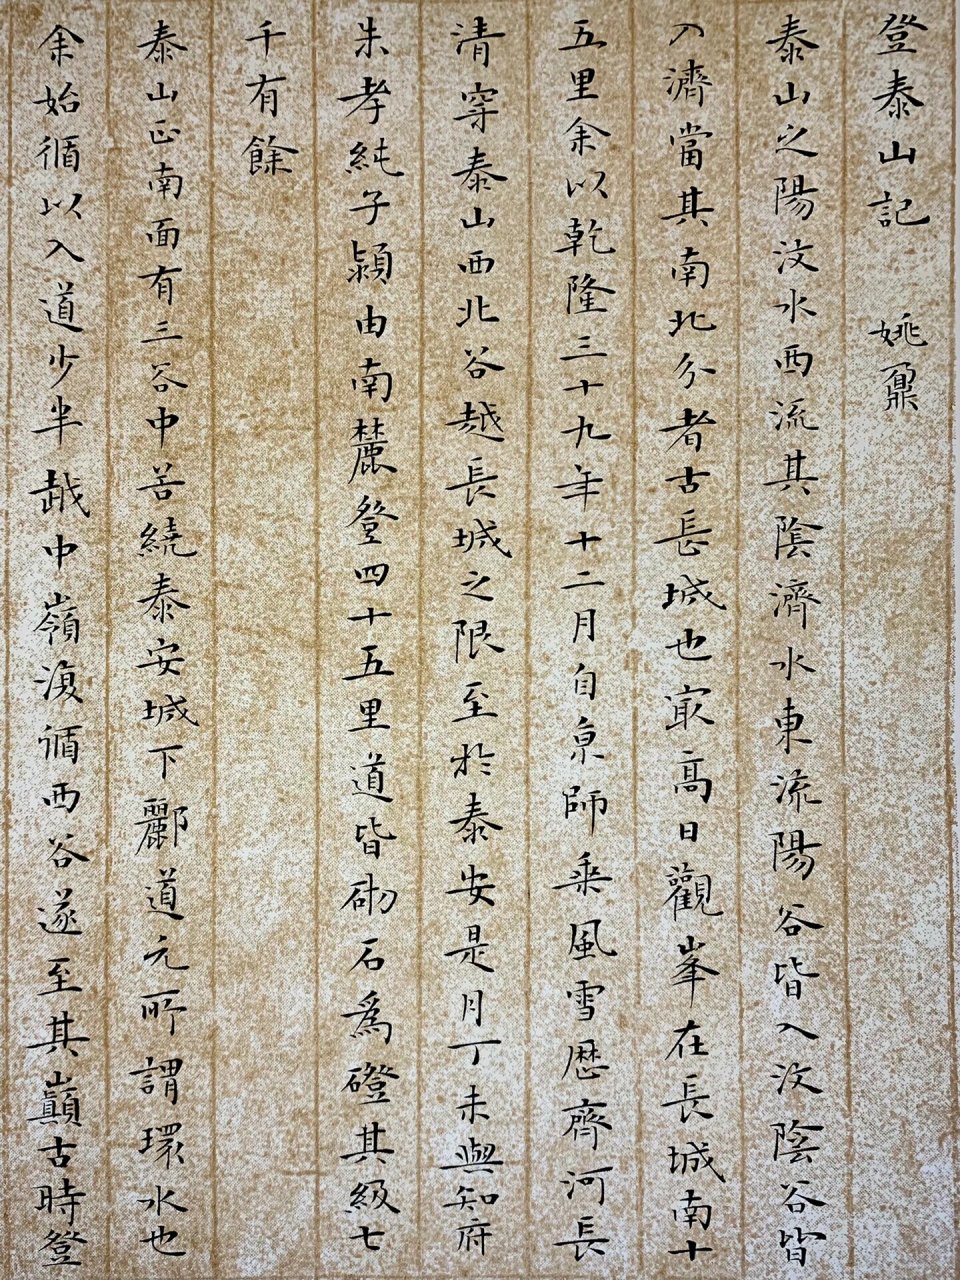 登泰山記 姚鼐
泰山之陽汶水西流其陰濟水東流陽谷皆入汶陰谷皆
入濟當其南北分者古長城也冣高日觀峯在長城南十
五里余以乾隆三十九年十二月自京師乗風雪歷齊河長
清穿泰山西北谷越長城之限至於泰安是月丁未與知府
朱孝純子潁由南麓登四十五里道皆砌石為磴其級七
千有餘
泰山正南面有三谷中苦繞泰安城下酈道元所謂環水也
余始循以入道少半越中嶺復循西谷遂至其巔古時登